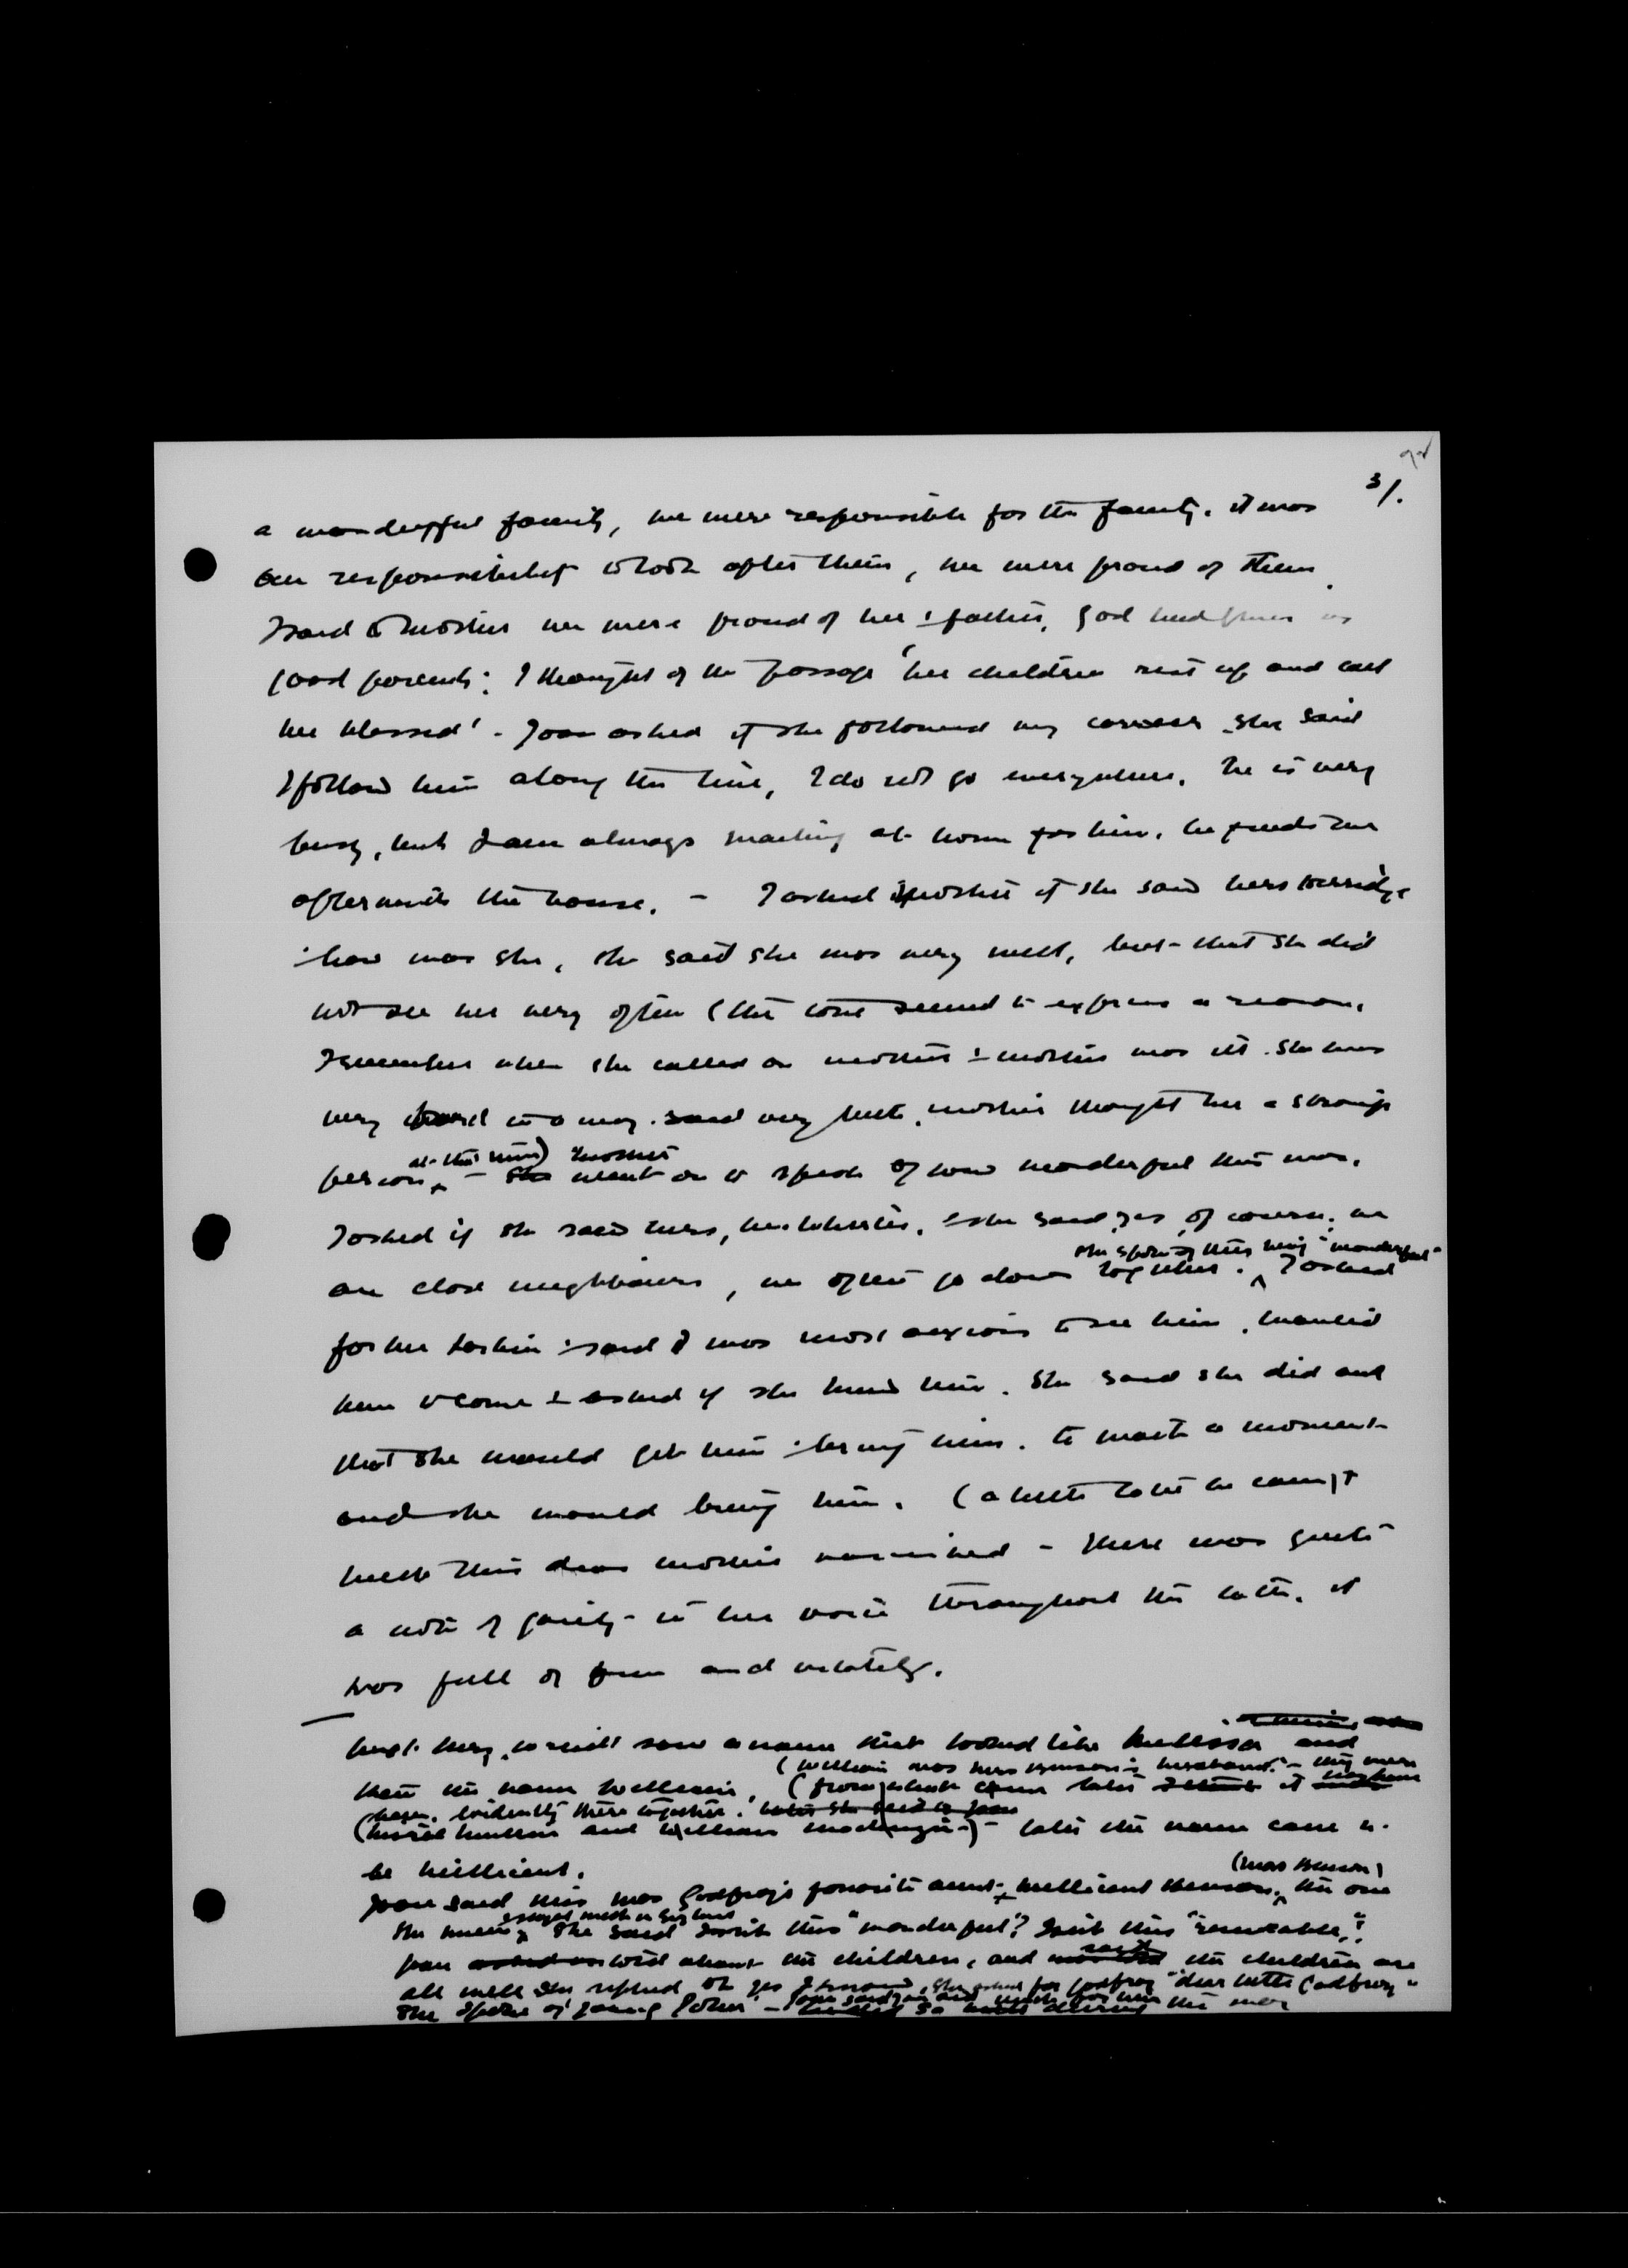 3/.
a wonderful family, we were responsible for the family. it was
our responsibility to look after them, we were proud of them.
I said to Mother we were proud of her & father, God had given us
good parents: I thought of the passage 'her children rise up and call
her blessed' - Joan asked if she followed my career she said
I follow him along the line, I do not go everywhere. he is very
busy, but I am always waiting at home for him. he finds me
afterwards the house. - I asked Mother if she saw
& how was she, she said she was very well, but that she did
not see her very often (the tone seemed to express a reason.
I remember when she called on mother & mother was ill. she was
very in a way. said very little. mother thought her a strange
at this time) Mother
person - She went on to speak of how wonderful this was.
I asked if she saw Mrs. & she said yes of course, we
she spoke of this being "wonderful"
are close neighbours, we often go down together. I asked
for & said I was most anxious to see him. wanted
him to come & asked if she knew him. She said she did and
that she would get him & bring him. to wait a moment
and she would bring him. (a little later he came)
With this dear mother vanished - there was quite
a note of gaiety in her voice throughout the talk. it
was full of fun and vitality.
Mary Wright saw a name that looked like Melissa and
(William was Mrs husband. - they were
then the name William, (from what came later it
evidently there together. later she said to Joan
and William - later the name came to
be Millicent.
(Mrs Benson)
Joan said this was Godfrey's favorite aunt - Millicent Benson, the one
She said isn't this "wonderful"? Isn't this "remarkable"?
Joan told about the children, and said the children are
all well she replied oh yes I know, she asked for Godfrey "dear little Godfrey"
She spoke of young Peter - so much during the war